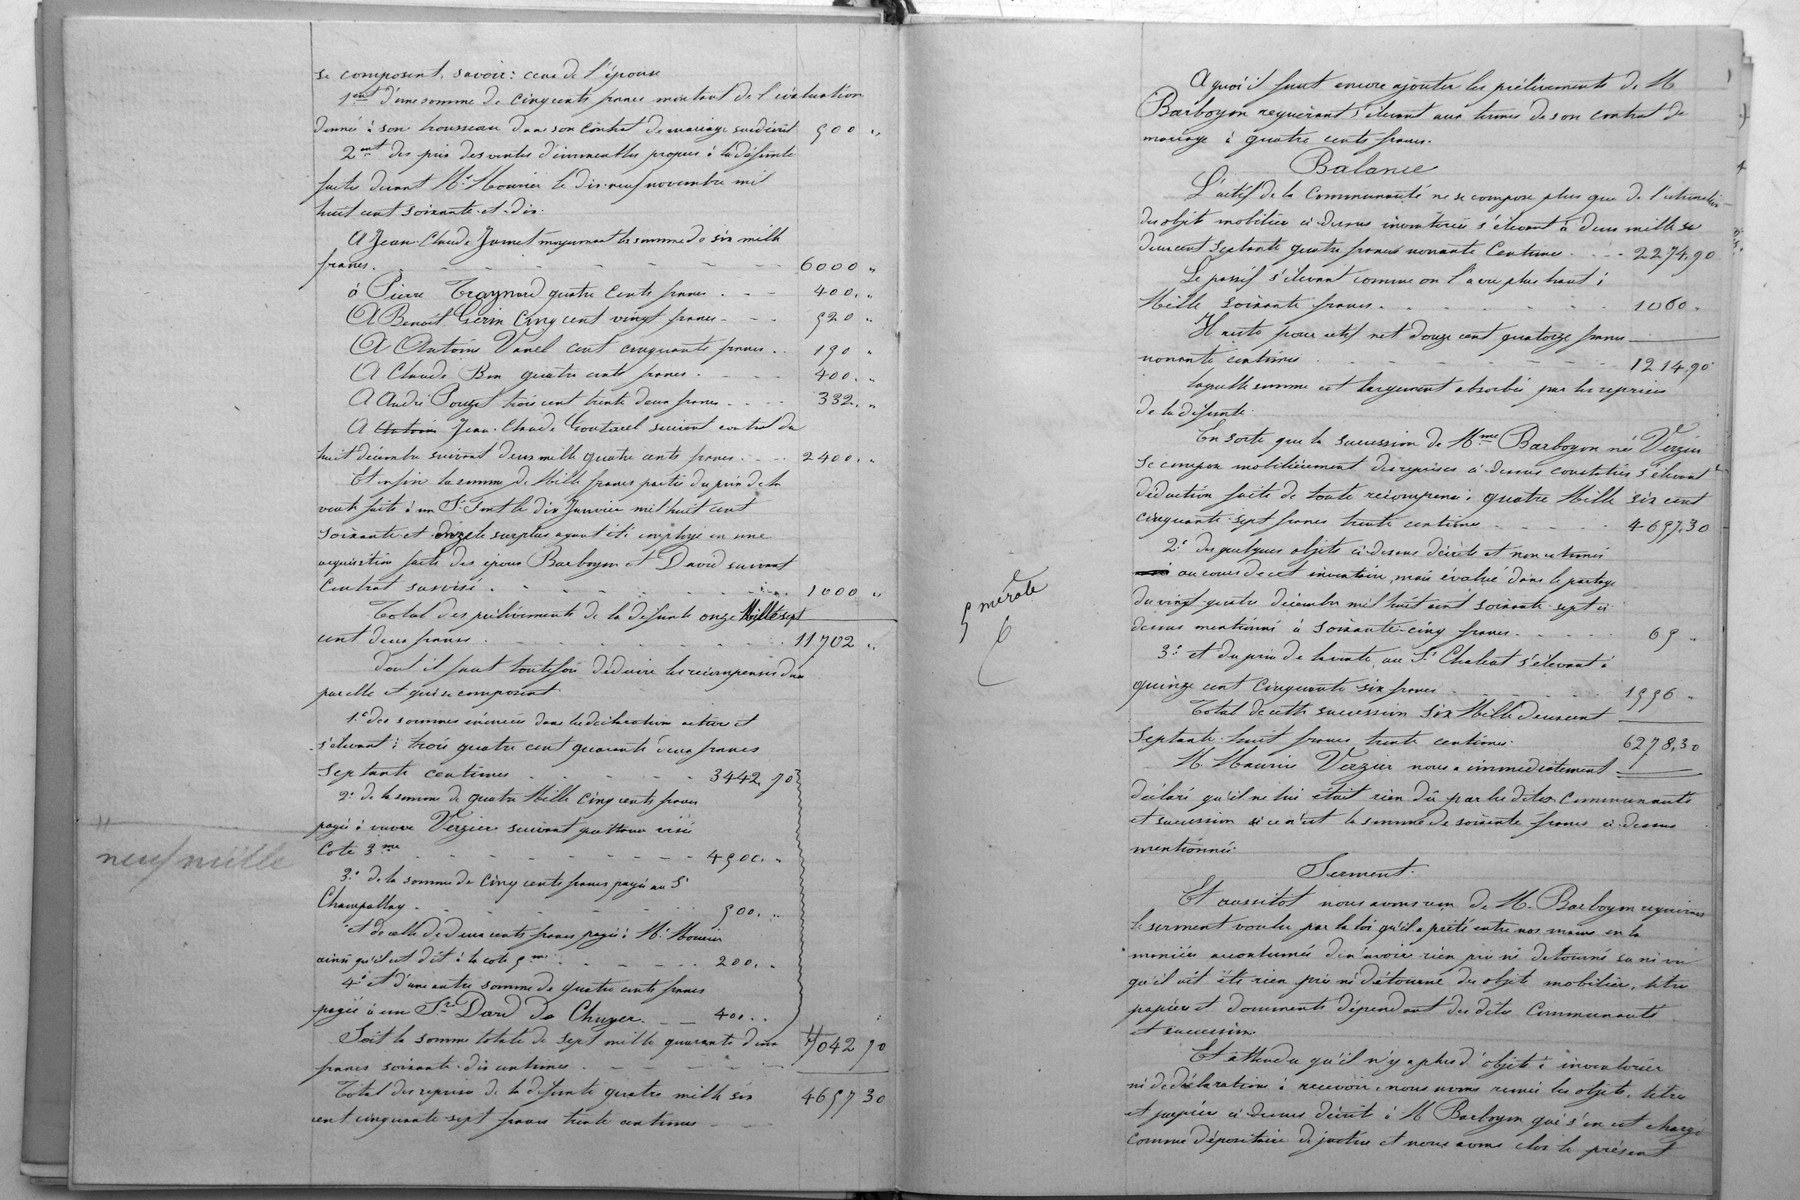 se composent, savoir: ceux de l'épouse
1ent d'une somme de cinq cents francs montant de l'évaluation
donnée à son trousseau dans son contrat de mariage susdécrit 500 "
2ent des prix des ventes d'immeubles propres à la défunte
faites devant Me Mounier le dix-neuf novembre mil
huit cent soixante-et-dix.
A Jean-Claude Jamet moyennant la somme de six mille
francs. 6000 "
à Pierre Traynard quatre cents francs 400. "
A Benoît Gerin cinq cent vingt francs 520 "
A Antoine Vanel cent cinquante francs 150 "
A Claude Bon quatre cents francs. 400. "
A André Pouzet trois cent trente deux francs 332. "
A Antoine Jean-Claude Goutarel suivant contrat du
huit décembre suivant deux mille quatre cents francs 2400. "
Et enfin la somme de Mille francs partie du prix de la
vente faite à un Sr Font le dix Janvier mil huit cent
soixante-et-onze le surplus ayant été employé en une
acquisition faite des époux Barboyon et David suivant
Contrat susvisé. 1000 "
Total des prélèvements de la défunte onze Mille sept
cent deux francs 11702 "
dont il faut toutefois déduire les récompenses dues
par elle et qui se composent
1º des sommes énoncées dans les déclarations actives et
s'élevant à trois quatre cent quarante deux francs
septante centimes 3442,70
2º de la somme de quatre Mille cinq cents francs
payée à veuve Verzier suivant quittance visée
Cote 3me 4500. "
3º de la somme de cinq cents francs payée au Sr
Champallay. 500. "
et de celle de deux cents francs payée à Me Mounier
ainsi qu'il est dit à la cote 5me 200. "
4º et d'une autre somme de quatre cents francs
payée à un Sr Dard de Chuyer. 400..
Soit la somme totale de sept mille quarante deux 7042 70
francs soixante-dix centimes
Total des reprises de la défunte quatre mille six 4657 30
cent cinquante-sept francs trente centimes
neuf mille
A quoi il faut encore ajouter les prélèvements de M
Barboyon requérant s'élevant aux termes de son contrat de
mariage à quatre cents francs.
Balance
L'actif de la Communauté ne se compose plus que de l'estimation
des objets mobiliers ci-dessus inventoriés s'élevant à deux mille
deux cent septante quatre francs nonante Centimes 2274,90
Le passif s'élevant comme on l'a vu plus haut à
Mille soixante francs. 1060.
Il reste pour actif net douze cent quatorze francs
nonante centimes 1214,90
laquelle somme est largement absorbée par les reprises
de la défunte.
En sorte que la succession de Mme Barboyon née Verzier
se compose mobilièrement des reprises ci-dessus constatées s'élevant
déduction faite de toute récompense à quatre Mille six cent
cinquante-sept francs trente centimes 4657,30
2º des quelques objets ci-dessus décrits et non estimés
au cours de cet inventaire, mais évalués dans le partage
du vingt-quatre décembre mil huit cent soixante-sept ci
dessus mentionné à soixante-cinq francs. 65.
3º et du prix de la vente au Sr Chaleat s'élevant à
quinze cent cinquante six francs 1556.
Total de cette succession Six Mille deux cent
septante-huit francs trente centimes. 6278,30
M. Maurice Verzier nous a immédiatement
déclaré qu'il ne lui était rien dû par les dites Communauté
et succession si ce n'est la somme de soixante francs ci-dessus
mentionnée.
Serment.
Et aussitôt nous avons reçu de M. Barboyon requérant
le serment voulu par la loi qu'il a prêté entre nos mains en la
manière accoutumée de n'avoir rien pris ni détourné su ni vu
qu'il ait été rien pris ni détourné des objets mobiliers, titres
papiers et documents dépendant des dites Communauté
et succession.
Et attendu qu'il n'y a plus d'objets à inventorier
ni de déclarations à recevoir, nous avons remis les objets, titres
et papiers ci-dessus décrits à M Barboyon qui s'en est chargé
comme dépositaire de justice et nous avons clos le présent